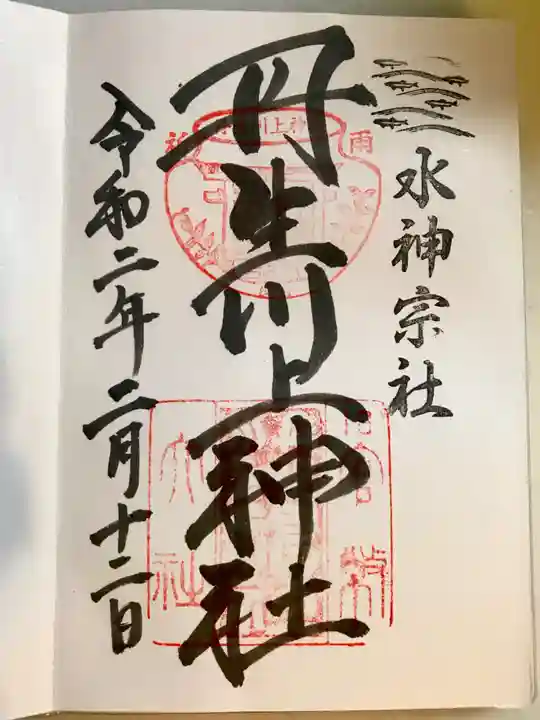 水神宗社
丹生川上神社
令和二年二月十二日
雨
社